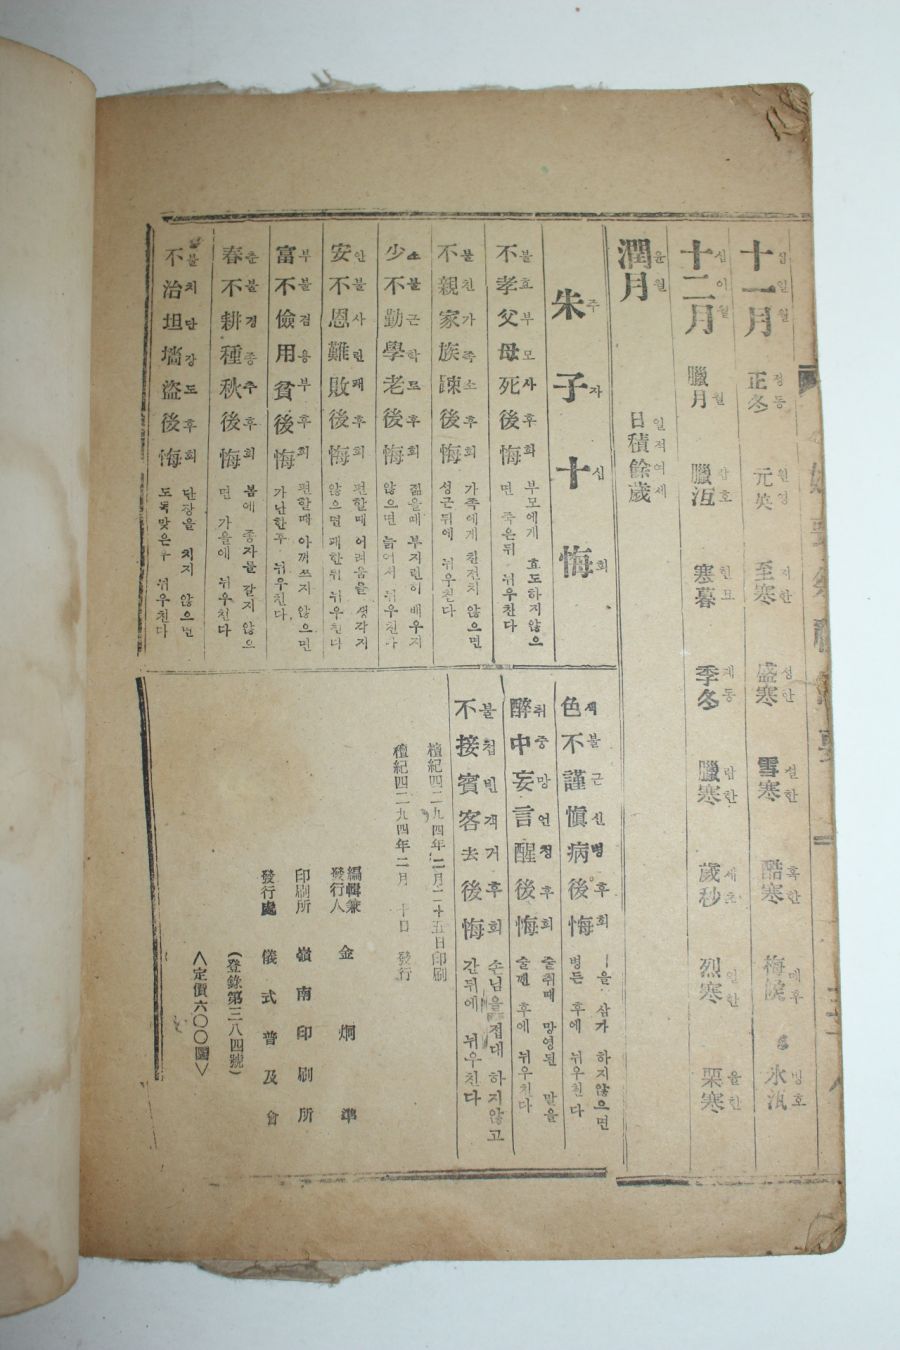 十一月 십일월
正冬 정동
元英 원영
至寒 지한
盛寒 성한
雪寒 설한
酷寒 혹한
梅候 매후
氷沍 빙호
十二月 십이월
臘月
臘沍
寒暮 한모
季冬 계동
臘寒 랍한
歲秒 세초
烈寒
栗寒 율한
潤月 윤월
日積餘歲 일적여세
朱子十悔 주자십회
不孝父母死後悔 불효부모사후회
부모에게 효도하지않으
면 죽은뒤 뉘우찬다
不親家族踈後悔 불친가족소후회
가족에게 친전치 않으면
성근뒤에 뉘우친다
少不勤學老後悔 소불근학로후회
젊을때 부지런이 배우지
않으면 늙어서 뉘우친다
安不思難敗後悔 안불사란패후회
편할때 어려움을 생각지
않으면 패한뒤 뉘우친다
富不儉用貧後悔 부불검용부후회
편할때 아껴쓰지 않으면
가난한후 뉘우친다
春不耕種秋後悔 춘불경종추후회
봄에 종자를 갈지 않으
면 가을에 뉘우친다
不治坦墻盜後悔 불치탄강도후회
단장을 치지 않으면
도적맞은후 뉘우친다
色不謹愼病後悔 색불근신병후회
을 삼가 하지않으면
병든 후에 뉘우친다
醉中妄言醒後悔 취중망언정후회
술취때 망영된 말을
술깬 후에 뉘우친다
不接賓客去後悔 불접빈객거후회
손님을 접대 하지않고
간뒤에 뉘우친다
檀紀四二九四年二月二十五日印刷
檀紀四二九四年二月 十日 發行
編輯兼發行人 金炯準
印刷所 嶺南印刷所
發行處 儀式普及會
(登錄第三八四號)
<定價六〇〇圜>